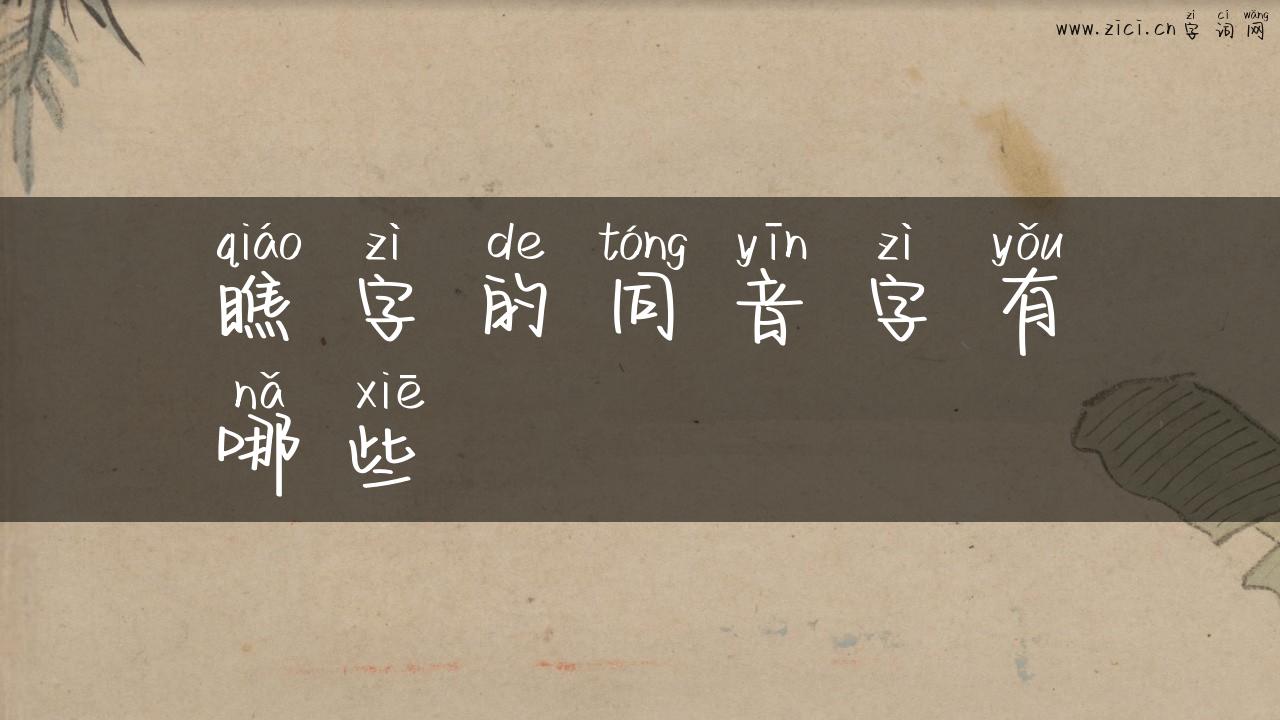 zì cí wǎng
www.zici.cn 字 词 网
qiáo zì de tóng yīn zì yǒu
瞧 字 的 同 音 字 有
nǎ xiē
哪 些